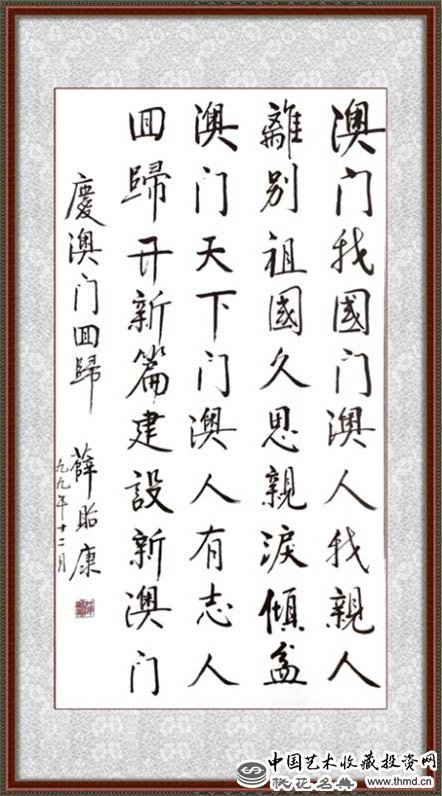 澳门我國门澳人我親人
離别祖國久思親淚傾盆
澳门天下门澳人有志人
回歸开新篇建設新澳门
慶澳门回歸
薛貽康
九九年十二月
中国艺术收藏投资网
桃花名典 www.thmd.cn